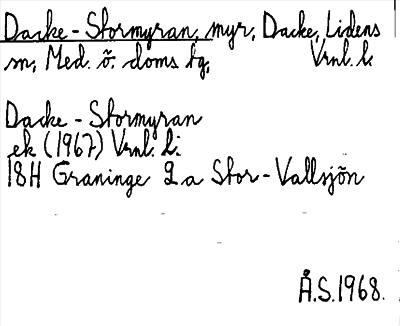 Dacke-Stormyran, myr, Dacke, Lidens
sn, Med. ö. doms tg, Vrnl. l.
Dacke-Stormyran
ek (1967) Vrnl. l.
18H Graninge 2 a Stor-Vallsjön
Å.S. 1968.